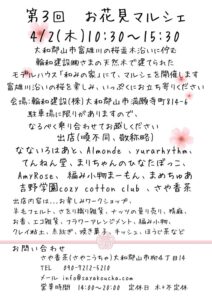 第3回　お花見マルシェ
4/2(木)10:30~15:30
大和郡山市富雄川の桜並木沿いに佇む
輪和建設㈱さまの天然木で建てられた
モデルハウス「和みの家」にて、マルシェを開催します
富雄川沿いの桜を楽しみ、いっぷくにお立ち寄りください
会場:輪和建設(株)大和郡山市満願寺町814-6
駐車場に限りがありますので、
なるべく乗り合わせてお越しください
出店(順不同、敬称略)
なないろはあと、Almonde 、yurarhythm、
てんねん堂、まりちゃんのひなたぼっこ、
AmyRose、編み小物まーもん、まめちゅあ
吉野学園cozy cotton club 、さや香茶
出店内容は...お楽しみワークショップ、
羊毛フェルト、さをり織り雑貨、ナッツの量り売り、
お香、エコ雑貨、フラワーアレンジメント、編み小物、
クレイ粘土、点訳、焼き菓子、キッシュ、ほうじ茶など
お問い合わせ
さや香茶(さやこうちゃ)大和郡山市柳4丁目14
TEL 090-9212-5210
メール info@sayakoucha.com
営業時間 14:00~20:00 定休日 木+不定休